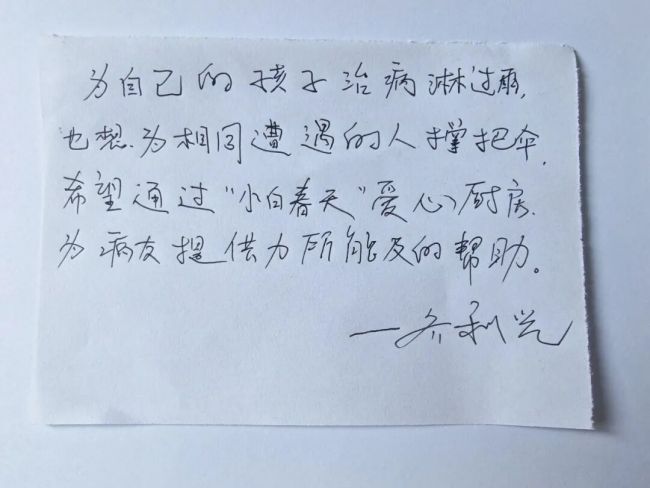 为自己的孩子治病淋过雨,
也想为相同遭遇的人撑把伞,
希望通过“小白春天”爱心厨房、
为病友提供力所能及的帮助。